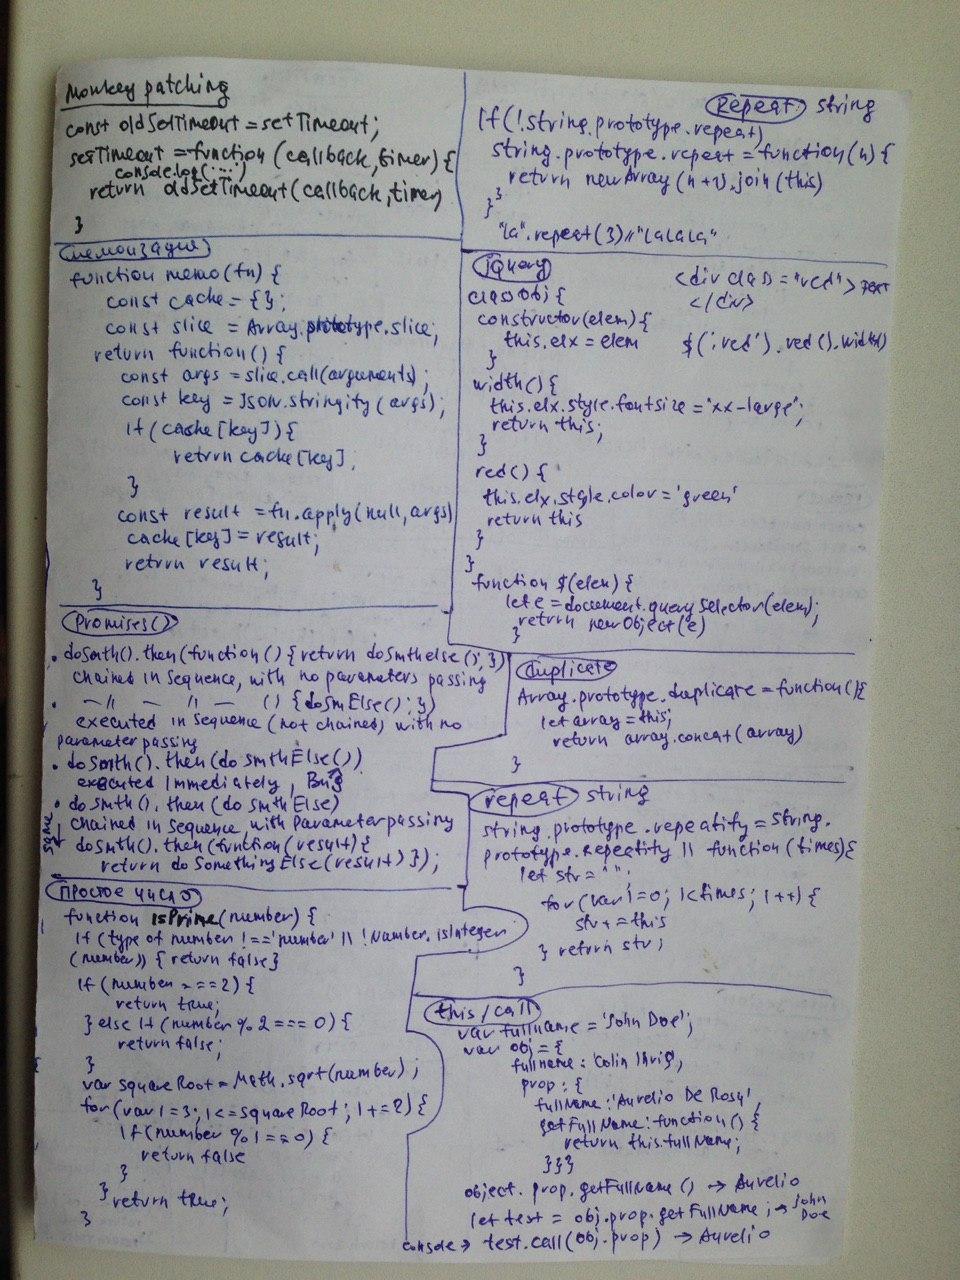 Monkey patching
const oldSetTimeout = setTimeout;
setTimeout = function (callback, timer) {
console.log('...')
return oldSetTimeout(callback, timer)
}
мемоизация
function memo(fn) {
const cache = {};
const slice = Array.prototype.slice;
return function() {
const args = slice.call(arguments);
const key = JSON.stringify(args);
if (cache[key]) {
return cache[key];
}
const result = fn.apply(null, args)
cache[key] = result;
return result;
}
Promises()
• doSmth().then(function() { return doSmthElse(); })
chained in sequence, with no parameters passing
• —〃 — 〃 — () { doSmElse(); })
executed in sequence (not chained) with no
parameter passing
• doSmth().then(doSmthElse())
executed immediately, Bug
• doSmth().then(doSmthElse)
chained in sequence, with Parameter passing
same ↓ doSmth().then(function(result) {
return doSomethingElse(result) });
Простое число
function isPrime(number) {
if (type of number !== 'number' || !Number.isInteger
(number)) { return false}
if (number === 2) {
return true;
} else if (number % 2 === 0) {
return false;
}
var squareRoot = Math.sqrt(number);
for (var i = 3; i <= squareRoot; i += 2) {
if (number % i === 0) {
return false
}
} return true;
}
Repeat string
if (!string.prototype.repeat)
string.prototype.repeat = function(n) {
return new Array (n+1).join(this)
}
}
"la".repeat(3) // "lalala"
jquery
class Obj {
constructor(elem) {
this.elx = elem
}
width() {
this.elx.style.fontSize = "xx-large";
return this;
}
red() {
this.elx.style.color = 'green'
return this
}
}
function $(elem) {
let e = document.querySelector(elem);
return new Object(e)
}
<div class = "red">
</div>
$('.red').red().width()
duplicate
Array.prototype.duplicate = function() {
let array = this;
return array.concat(array)
}
repeat string
string.prototype.repeatify = String.
prototype.repeatify || function (times) {
let str = "";
for (var i = 0; i < times; i++) {
str += this
} return str;
}
this/call
var fullname = 'John Doe';
var obj = {
fullname: 'Colin Ihrig',
prop: {
fullName: 'Aurelio De Rosa',
getFullName: function() {
return this.fullName;
}}}
object.prop.getFullname() → Aurelio
let test = obj.prop.getFullName; → John
Doe
console → test.call(obj.prop) → Aurelio